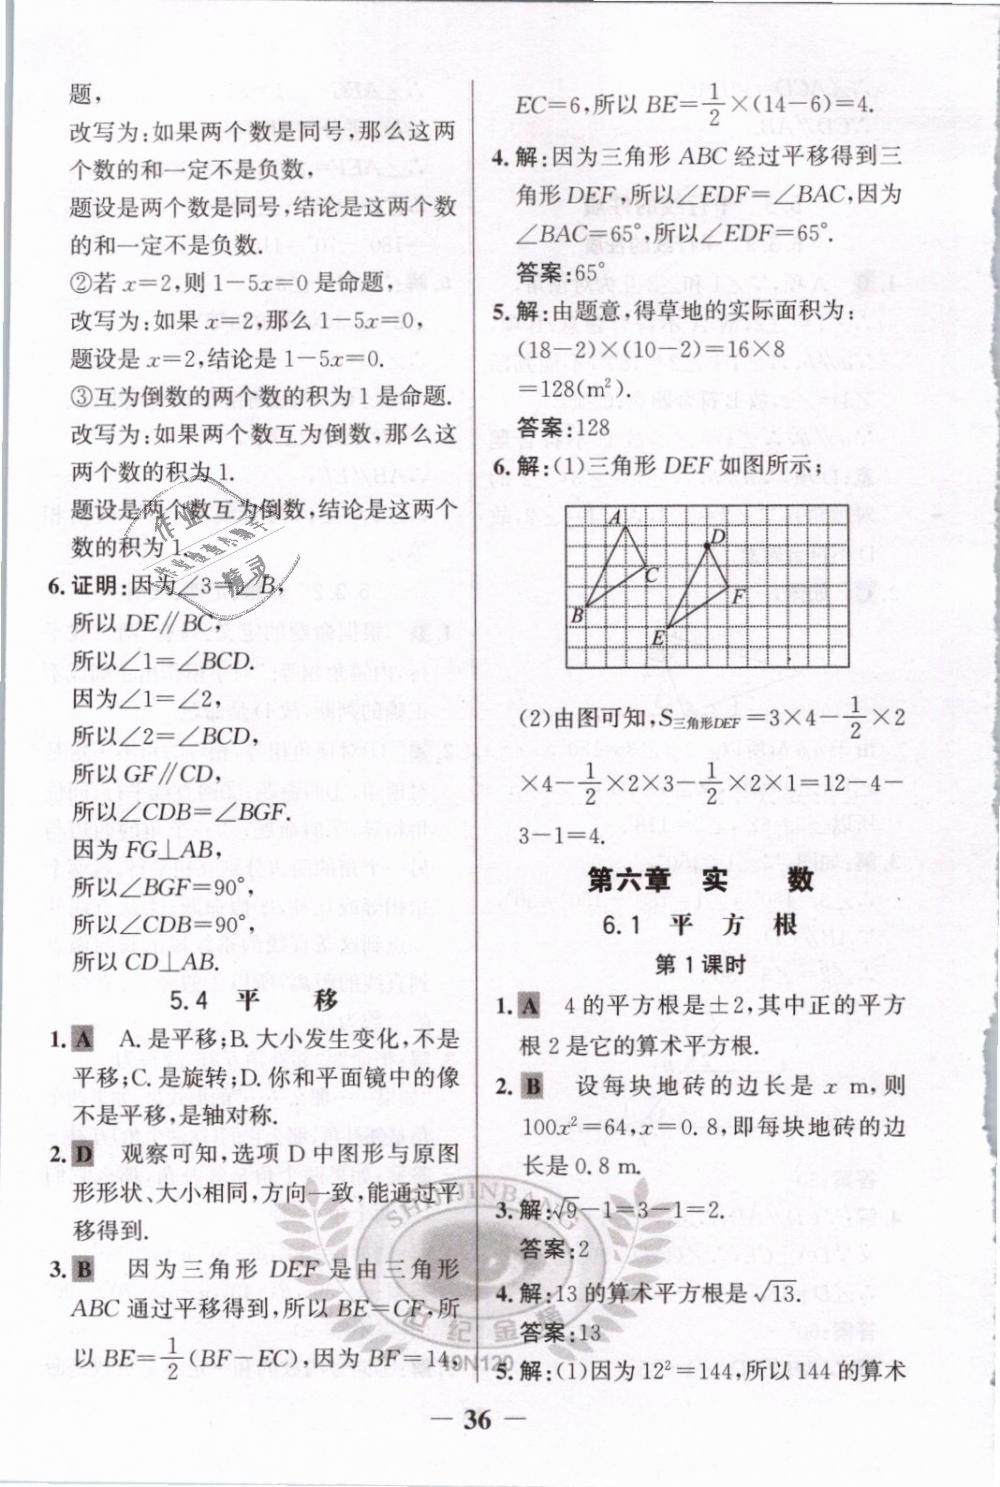 题,
改写为:如果两个数是同号,那么这两
个数的和一定不是负数,
题设是两个数是同号,结论是这两个数
的和一定不是负数.
②若 x=2,则 1-5x=0 是命题,
改写为:如果 x=2,那么 1-5x=0,
题设是 x=2,结论是 1-5x=0.
③互为倒数的两个数的积为 1 是命题.
改写为:如果两个数互为倒数,那么这
两个数的积为 1.
题设是两个数互为倒数,结论是这两个
数的积为 1.
6.证明:因为∠3=∠B,
所以 DE∥BC,
所以∠1=∠BCD.
因为∠1=∠2,
所以∠2=∠BCD,
所以 GF∥CD,
所以∠CDB=∠BGF.
因为 FG⊥AB,
所以∠BGF=90°,
所以∠CDB=90°,
所以 CD⊥AB.
5.4 平 移
1. A A.是平移;B.大小发生变化,不是
平移;C.是旋转;D.你和平面镜中的像
不是平移,是轴对称.
2. D 观察可知,选项 D 中图形与原图
形形状、大小相同,方向一致,能通过平
移得到.
3. B 因为三角形 DEF 是由三角形
ABC 通过平移得到,所以 BE=CF,所
以 BE=1/2(BF-EC),因为 BF=14,
EC=6,所以 BE=1/2×(14-6)=4.
4.解:因为三角形 ABC 经过平移得到三
角形 DEF,所以∠EDF=∠BAC,因为
∠BAC=65°,所以∠EDF=65°.
答案:65°
5.解:由题意,得草地的实际面积为:
(18-2)×(10-2)=16×8
=128(m²).
答案:128
6.解:(1)三角形 DEF 如图所示;
A
D
C
F
B
E
(2)由图可知,S三角形DEF=3×4-1/2×2
×4-1/2×2×3-1/2×2×1=12-4-
3-1=4.
第六章 实 数
6.1 平 方 根
第 1 课时
1. A 4 的平方根是±2,其中正的平方
根 2 是它的算术平方根.
2. B 设每块地砖的边长是 x m,则
100x²=64,x=0.8,即每块地砖的边
长是 0.8 m.
3.解:√9-1=3-1=2.
答案:2
4.解:13 的算术平方根是 √13.
答案:13
5.解:(1)因为 12²=144,所以 144 的算术
SHIJIJINBANG
世纪金榜
19N120
— 36 —